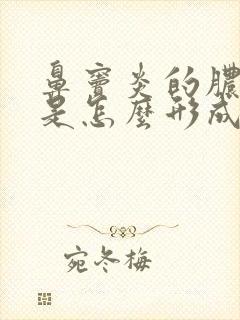 鼻窦炎的脓
是怎麼形成
宛冬梅